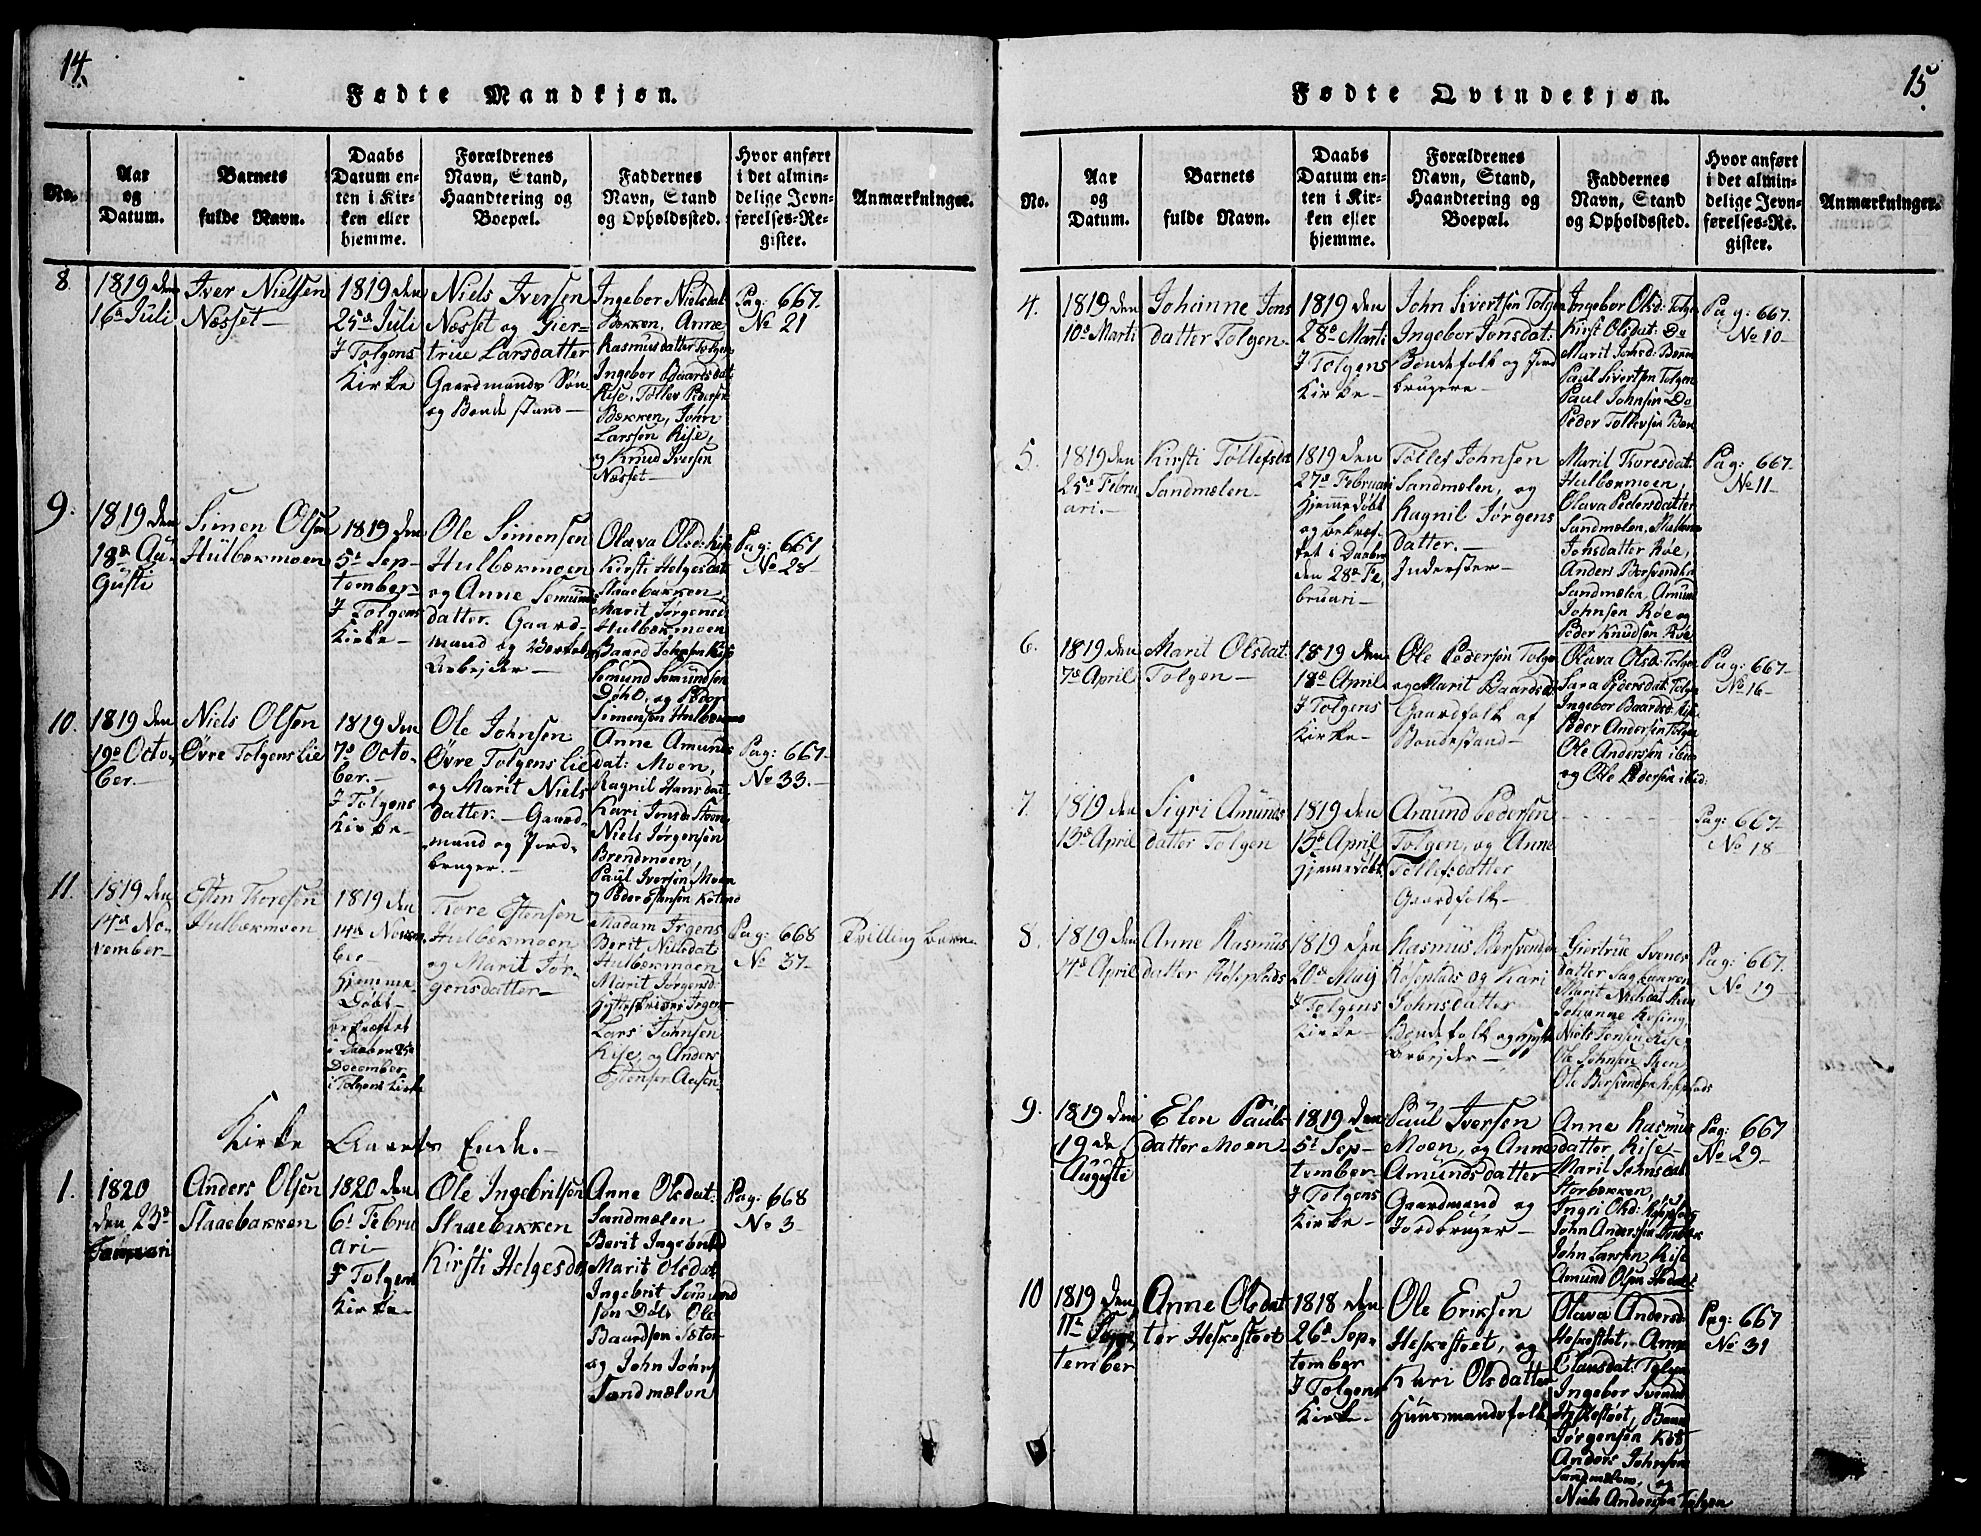 14.
Fødte Mandkjøn.
No.
Aar
og
Datum.
Barnets
fulde Navn.
Daabs
Datum en-
ten i Kir-
ken eller
hjemme.
Forældrenes
Navn, Stand,
Haandtering og
Boepæl.
Faddernes
Navn, Stand
og Opholdssted.
Hvor anført
i det almin-
delige Jevn-
førelses-Re-
gister.
Anmærkninger.
8
1819 den
16d Juli
Iver Nielsen
Næsset
1819 den
25d Juli
I Tolgens
Kirke
Niels Iversen
Næsset og Gier-
true Larsdatter
Gaardmands Søn
og Bondestand
Ingebor Nielsdat
Bækken, Anne
Rasmusdatter Tolgen
Ingebor Baardsdat
Rise, Tollev Pedersen
Bækken, John
Larssen Rise,
og Knud Iversen
Næsset
Pag: 667.
No 21
9.
1819 den
18d Au-
gusti
Simen Olsen
Hulbækmoen
1819 den
5t Sep-
tember
I Tolgens
Kirke
Ole Simensen
Hulbækmoen
og Anne Semunds
datter. Gaard-
mand og
Arbejder
Olava Olsd: Rise
Kirsti Helgesdat
Slaaebakken
Marit Jørgensd:
Hulbækmoen
Baard Johnsen Rise
Semund Semundsen
Døhl, og Peder
Simensen Hulbækmo
Pag: 667
No 28
10.
1819 den
19d Octo-
ber.
Niels Olsen
Øvre Tolgens Lie
1819 den
7d Octo-
ber.
I Tolgens
Kirke
Ole Johnsen
Øvre Tolgens Lie
og Marit Niels
datter. Gaard-
mand og Jord-
bruger.
Anne Amunds
dat: Moen,
Ragnil Hansdat
Kari Jonsda
Niels Jørgensen
Brendmoen,
Paul Iversen Moen
og Peder Estensen
Pag: 667.
No 33.
11.
1819 den
14d No-
vember
Esten Toresen
Hulbækmoen
1819 den
14d Novem
ber
Hjemme
Døbt
bekræftet
i Daaben 25d
December
i Tolgens Kirke
Tore Estensen
Hulbækmoen
og Marit Jør-
gensdatter
Madam Irgens
Berit Nielsdat
Hulbækmoen
Marit Jørgensd:
Hytteskriver Irgens
Lars Johnsen
Rise, og Anders
Estensen Aasen
Pag: 668
No 37
Tvilling børn
Kirke Aarets Ende.
1.
1820
den 23d
Januari
Anders Olsen
Slaaebakken
1820 den
6t Febru
ari
I Tolgens
Kirke
Ole Ingebritsen
Slaaebakken
Kirsti Helgesda
Anne Olsdat:
Sandmælen
Berit Ingebritsd
Marit Olsdat
Ingebrit Semund
søn Døhl Ole
Baardsen Sæter
og John Johns
Sandmælen
Pag: 668
No 3
15.
Fødte Qvindekjøn.
No.
Aar
og
Datum.
Barnets
fulde Navn.
Daabs
Datum en-
ten i Kir-
ken eller
hjemme.
Forældrenes
Navn, Stand,
Haandtering og
Boepæl.
Faddernes
Navn, Stand
og Opholdssted.
Hvor anført
i det almin-
delige Jevn-
førelses-Re-
gister.
Anmærkninger.
4.
1819 den
10d Marti
Johanne Jons
datter Tolgen
1819 den
28d Marti
I Tolgens
Kirke
John Sivertsen Tolgen
Ingebor Jonsdat:
Bondefolk og Jord
brugere
Ingebor Olsd: Tolgen
Kirst Olsdat: Do
Marit Johsd:
Paul Sivertsen Tolgen
Paul Johnsen Do
Peder Tollevsen
Pag: 667.
No 10
5.
1819 den
25d Febru
ari.
Kirsti Tollefsda
Sandmælen
1819 den
27d Februari
Hjemmedøbt
og bekræf-
tet i Daaben
den 28d Fe-
bruari
Tollef Johnsen
Sandmælen, og
Ragnil Jørgens
datter.
Inderster
Marit Thoresdat:
Hulbækmoen,
Olava Pedersdatter
Sandmælen,
Jonsdatter Røe,
Anders Bersvendsen
Sandmælen, Amund
Johnsen Røe og
Peder Knudsen Røe
Pag: 667
No 11
6.
1819 den
7d April
Marit Olsdat:
Tolgen
1819 den
18d April
I Tolgens
Kirke
Ole Pedersen Tolge
og Marit Baardsd
Gaardfolk af
Bondestand
Olava Olsd: Tolgen
Sara Pedersdat: Tolgen
Ingebor Baardsd: Rise
Peder Andersen Tolgen
Ole Andersen ibid
og Ole Pedersen ibid:
Pag: 667
No 16
7.
1819 den
13d April
Sigri Amunds
datter Tolgen
1819 den
13d April
Hjemmedøbt
Amund Pedersen
Tolgen, og Anne
Tollefsdatter
Gaardfolk
Pag: 667
No 18
8.
1819 den
14d April
Anne Rasmus
datter Røseplads
1819 den
20d Maij
I Tolgens
Kirke
Rasmus Bersvendsen
Roseplads og Kari
Johnsdatter
Bondefolk og
Arbejder
Giertrue Svends
datter Sagbakken
Marit Nielsdat
Johanne Rosing,
Niels Jensen Rise,
Ole Johnsen
Ole Bersvendsen Roseplads
Pag: 667.
No 19
9.
1819 den
19 de
Augusti
Elen Pauls
datter Moen
1819 den
5t Sep-
tember
I Tolgens
Kirke
Paul Iversen
Moen, og Anne
Amundsdatter
Gaardmand og
Jordbruger
Anne Rasmus
datter, Rise
Marit Johnsdat:
Storbækken,
Ingri Olsd:
John Andersen
John Larsen Rise
Amund Olsen
Pag: 667
No 29
10
1819 den
11te Sep
tember
Anne Olsdat
ter Heskestøet
1818 den
26d Sep-
tember
I Tolgens
Kirke
Ole Eriksen
Heskestøet, og
Kari Olsdatter
Huusmandsfolk
Olava Andersd:
Heskestøet, Anne
Clausdat: Tolgen
Ingebor Svends
Heskestøet, Baard
Jørgensen
Anders Johnsen
Sandmælen, og
Niels Andersen Tolgen
Pag: 667
No 31